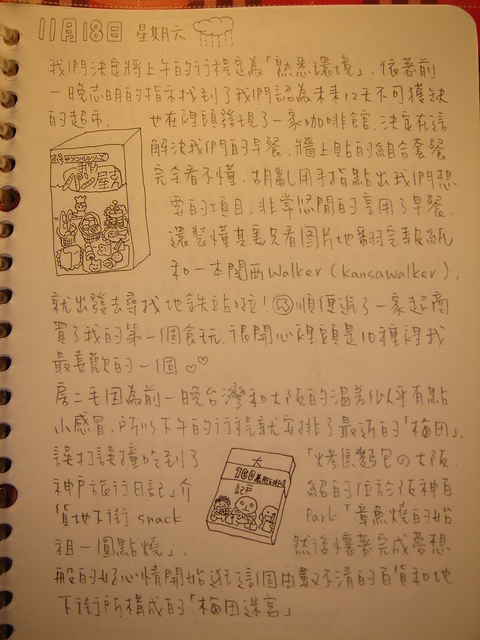 11月18日 星期六
我們決定將上午的行程定為「熟悉環境」, 依著前
一晚志明的指示找到了我們認為未來12天不可獲缺
的超市. 也在裡頭發現了一家咖啡館, 決定在這
解決我們的早餐. 牆上貼的組合套餐
完全看不懂, 胡亂用手指點出我們想
要的項目, 非常悠閒的享用了早餐.
還裝懂其實只看圖片地翻完報紙
和一本関西walker (kansaiwalker),
就出發去尋找地鉄站啦! 順便逛了一家超商
買了我的第一個食玩, 很開心裡頭是10種裡我
最喜歡的一個
房二毛因為前一晚台灣和大阪的溫差似乎有點
小感冒, 所以下午的行程就安排了最近的「梅田」,
誤打誤撞吃到了 「烤焦麵包の大阪
神戶旅行日記」介 紹的位於阪神百
貨地下街 snack Park「章魚燒的始
祖一圓點燒」. 然後懷著完成夢想
般的好心情開始逛這個由數不清的百貨和地
下街所構成的「梅田迷宮」